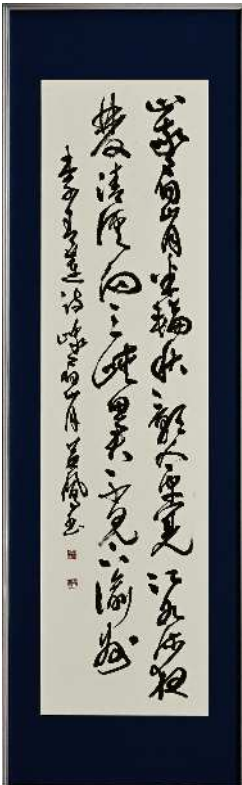 峩眉山月半輪秋影入平羌江水流夜
發清溪向三峽思君不見下渝州
李青蓮詩峨眉山月書